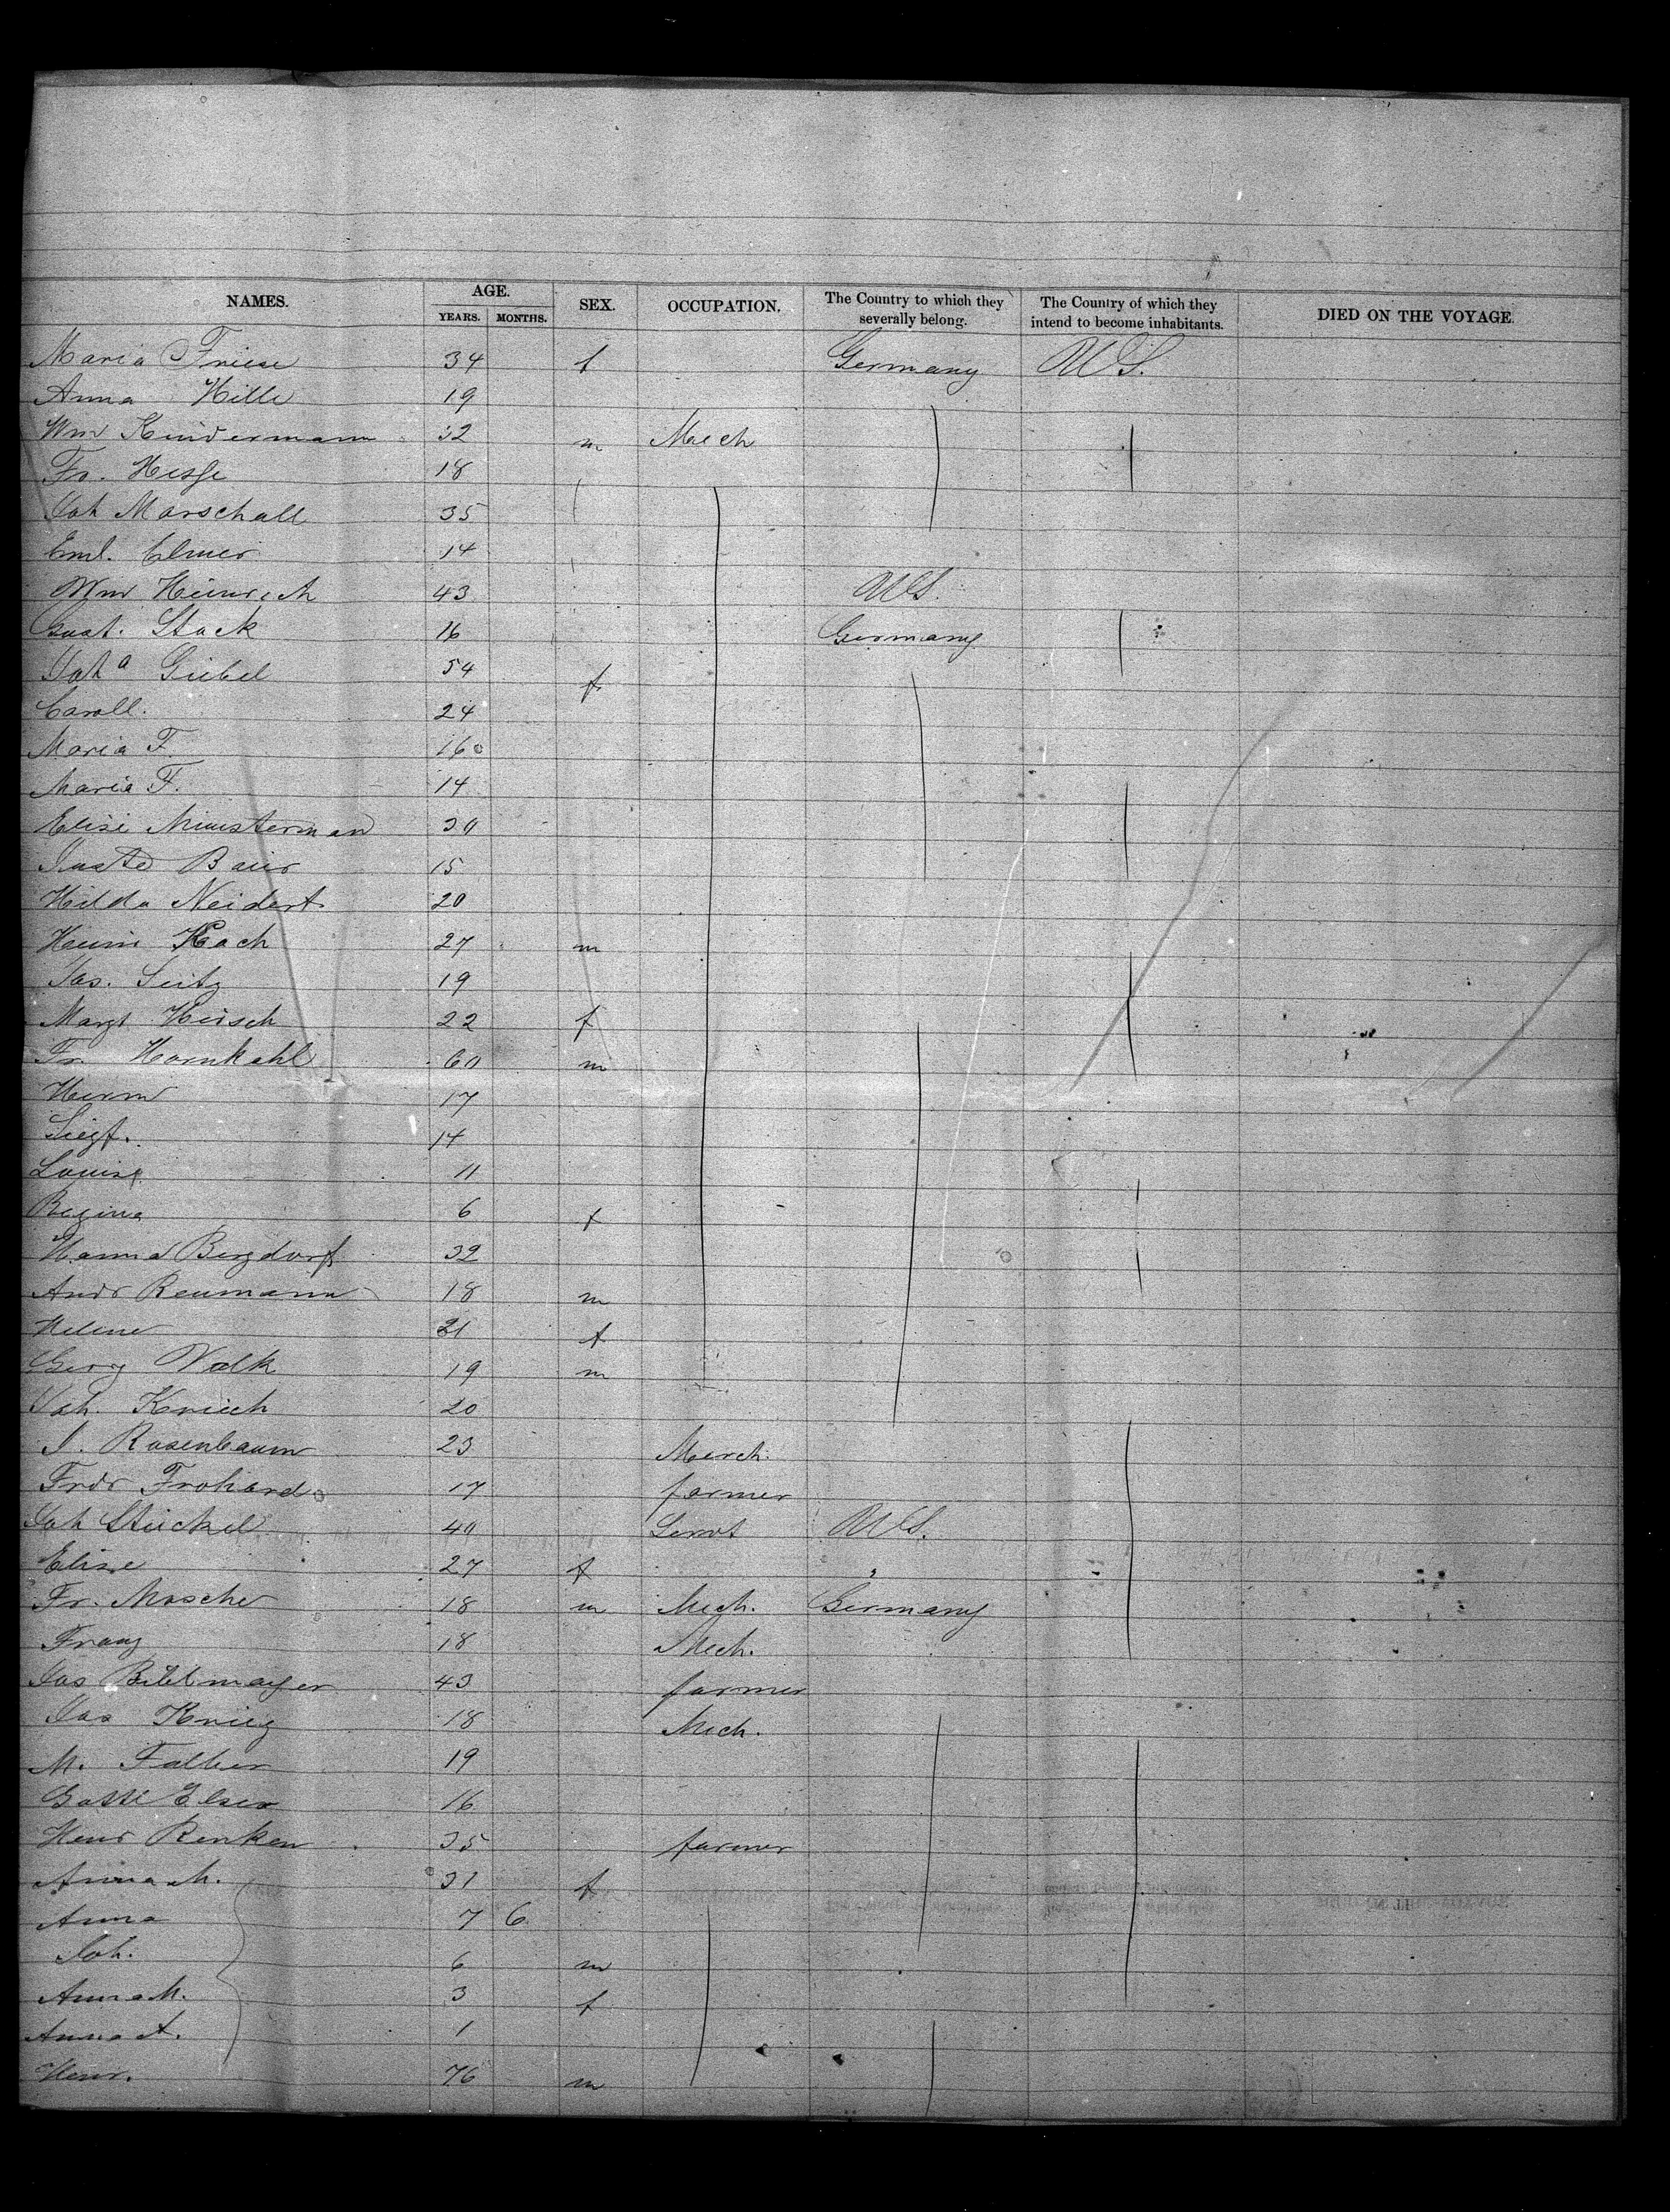 NAMES. AGE. SEX. OCCUPATION. The Country to which they severally belong. The Country of which they intend to become inhabitants. DIED ON THE VOYAGE.
YEARS. MONTHS.
Maria Friese 34 f Germany U S.
Anna Hille 19
Wm Kindermann 32 m Mech
Fr. Hesse 18
Joh Marschall 35
Eml. Elmer 14
Wm Heinrich 43 U S.
Gust. Stack 16 Germany
Joh a Giebel 54 f
Caroll. 24
Maria F. 16
Maria F. 14
Elise Munsterman 30
Baier 15
Hilda Neidert 20
Koch 27 m
Jos. Seitz 19
Margt Hirsch 22 f
Fr. Hornkohl 60 m
Herm 17
Siegf. 14
Louise 11
Regina 6 f
Hanna Bergdorf 32
Andr Reumann 18 m
Helene 21 f
Georg Volk 19 m
Joh. Kniech 20
J. Rosenbaum 23 Merch.
Fridr Frohard 17 farmer
Joh Stuckel 40 U S.
Elise 27 f "
Fr. Moscher 18 m Mech. Germany
Franz 18 Mech.
Jos 43 farmer
Jos Krieg 18 Mech.
M. Falker 19
Gottl Elser 16
Henr Renken 35 farmer
Anna M. 31 f
Anna 7 6
Joh. 6 m
Anna M. 3 f
Anna A. 1
Henr. 76 m